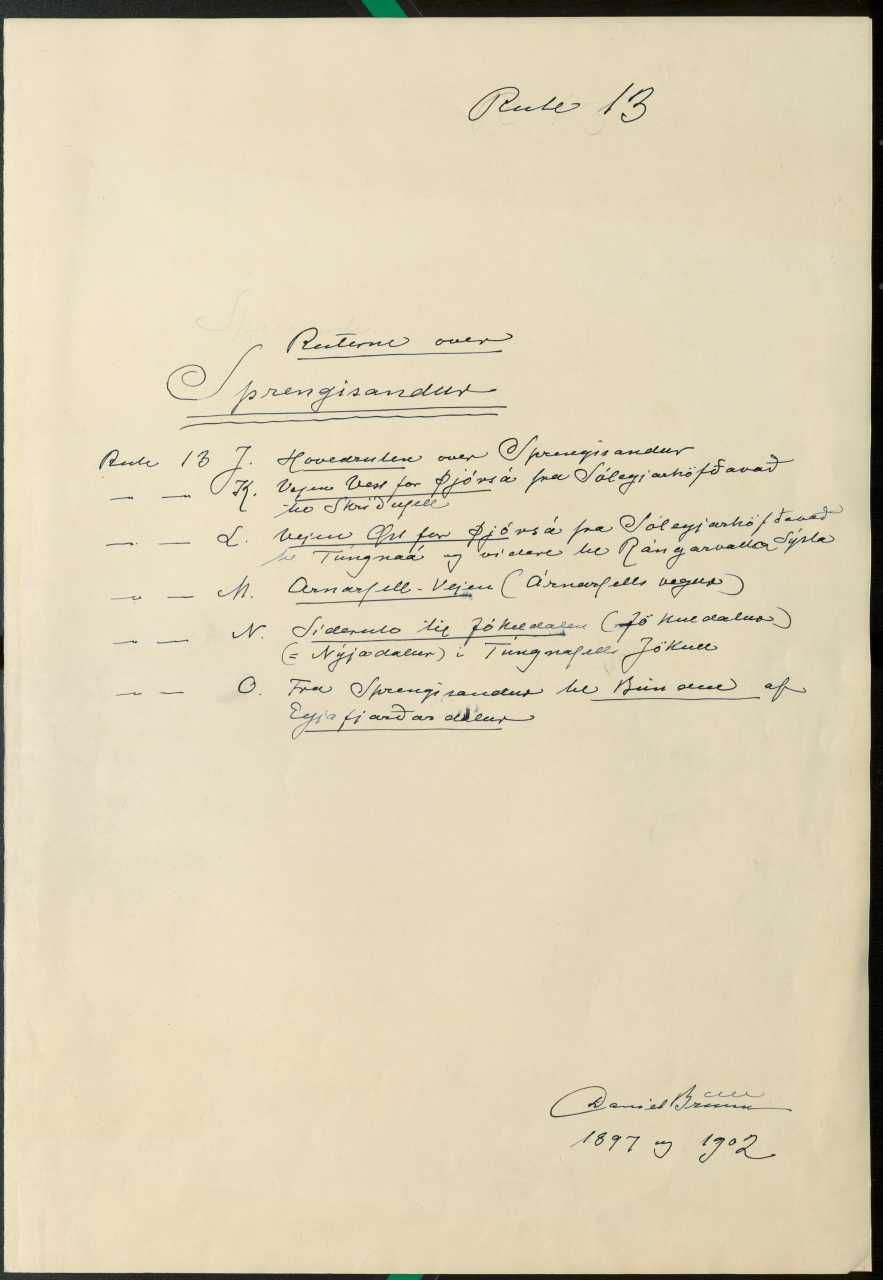 Rute 13
Ruterne over
Sprengisandur
Rute 13 J. Hovedruten over Sprengisandur
— — K. Vejen Vest for Þjórsá fra Sóleyjarhöfðavað
til Skriðufell
— „ — L. Vejen Øst for Þjórsá fra Sóleyjarhöfðavað
til Túngnaá og videre til Rángarvalla Sýsla
— „ — M. Arnarfell-Vejen (Árnarfells vegur)
— „ — N. Siderute til Jökuldalen (Jökuldalur)
(= Nýjadalur) i Túngnafells Jökull
— „ — O. Fra Sprengisandur til Bunden af
Eyjafjarðardalur
Daniel Bruun
1897 og 1902